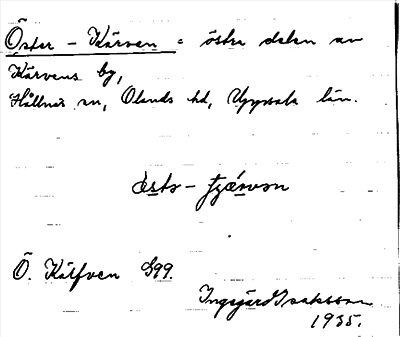 Öster - Kärven = östra delen av
Kärvens by,
Hållnäs sn, Olands hd, Uppsala län.
Ö. Kälfven G99.
Ingegärd Isaksson
1935.